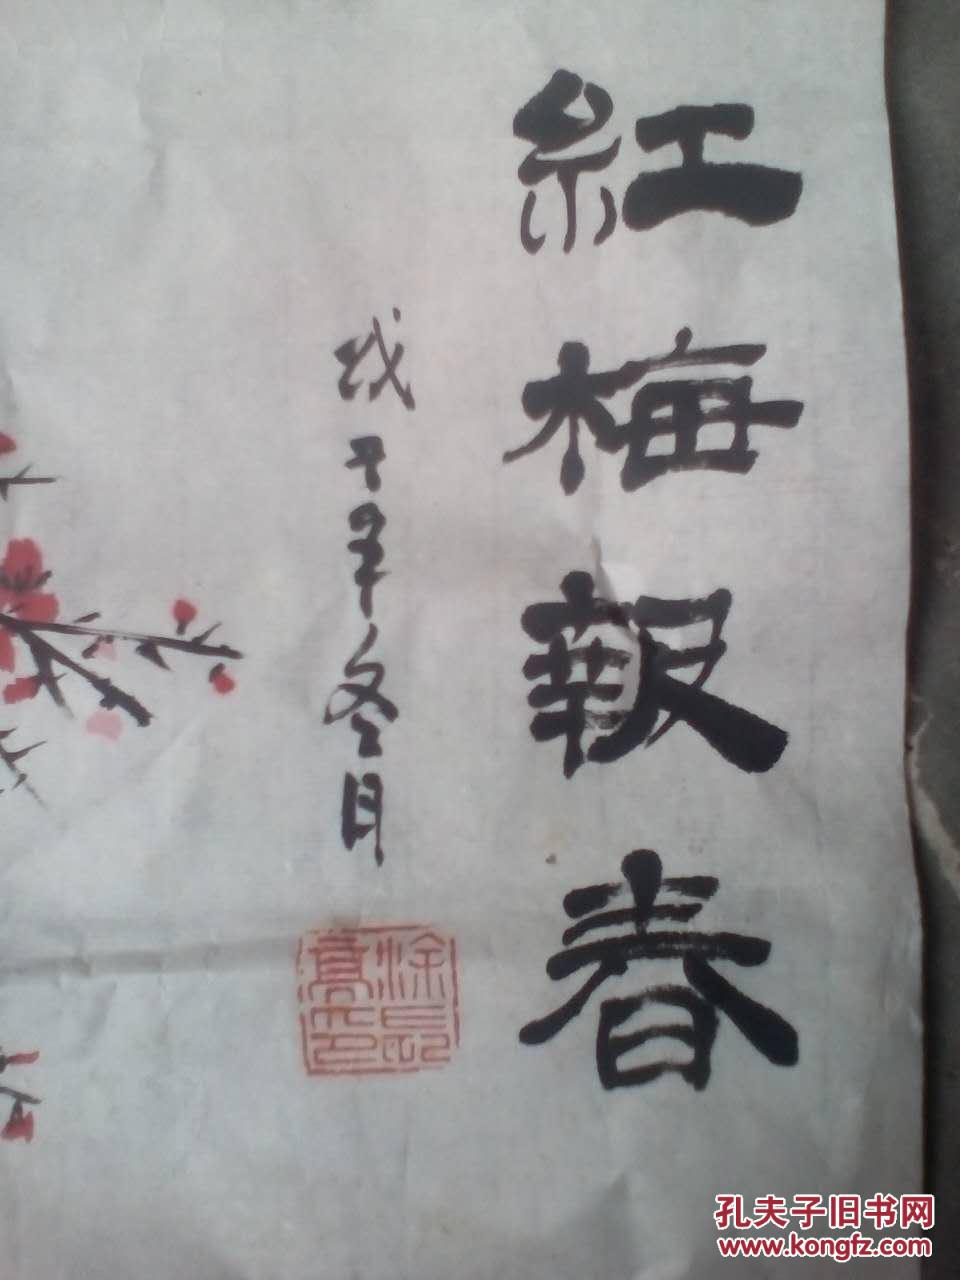 紅梅報春
戊子年冬月
孔夫子旧书网
www.kongfz.com